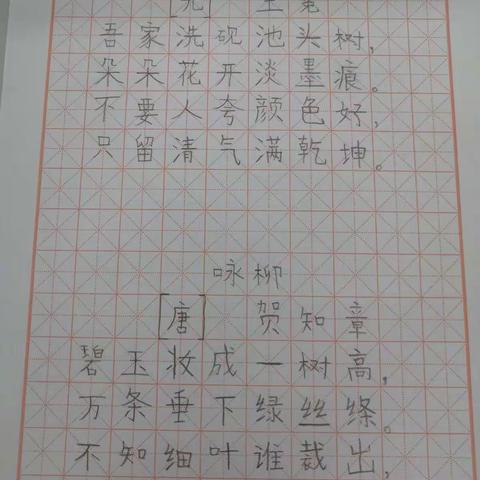 [元] 王冕
吾家洗砚池头树,
朵朵花开淡墨痕。
不要人夸颜色好,
只留清气满乾坤。
咏柳
[唐] 贺知章
碧玉妆成一树高,
万条垂下绿丝绦。
不知细叶谁裁出,